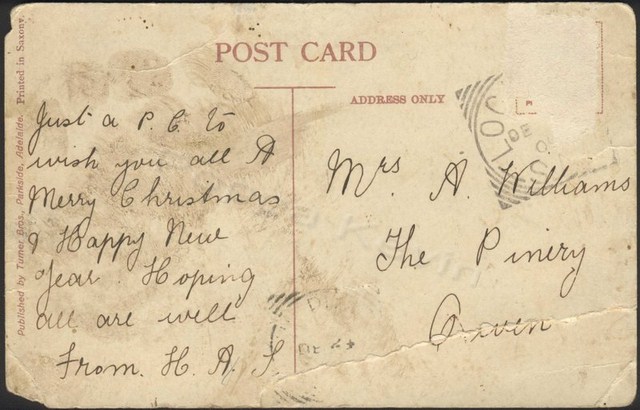 POST CARD
ADDRESS ONLY
Published by Turner Bros., Parkside, Adelaide. Printed in Saxony.
Just a P. C. to
wish you all A
Merry Christmas
& Happy New
Year. Hoping
all are well
From. H. A. S.
Mrs. A. Williams
The Pinery
Owen